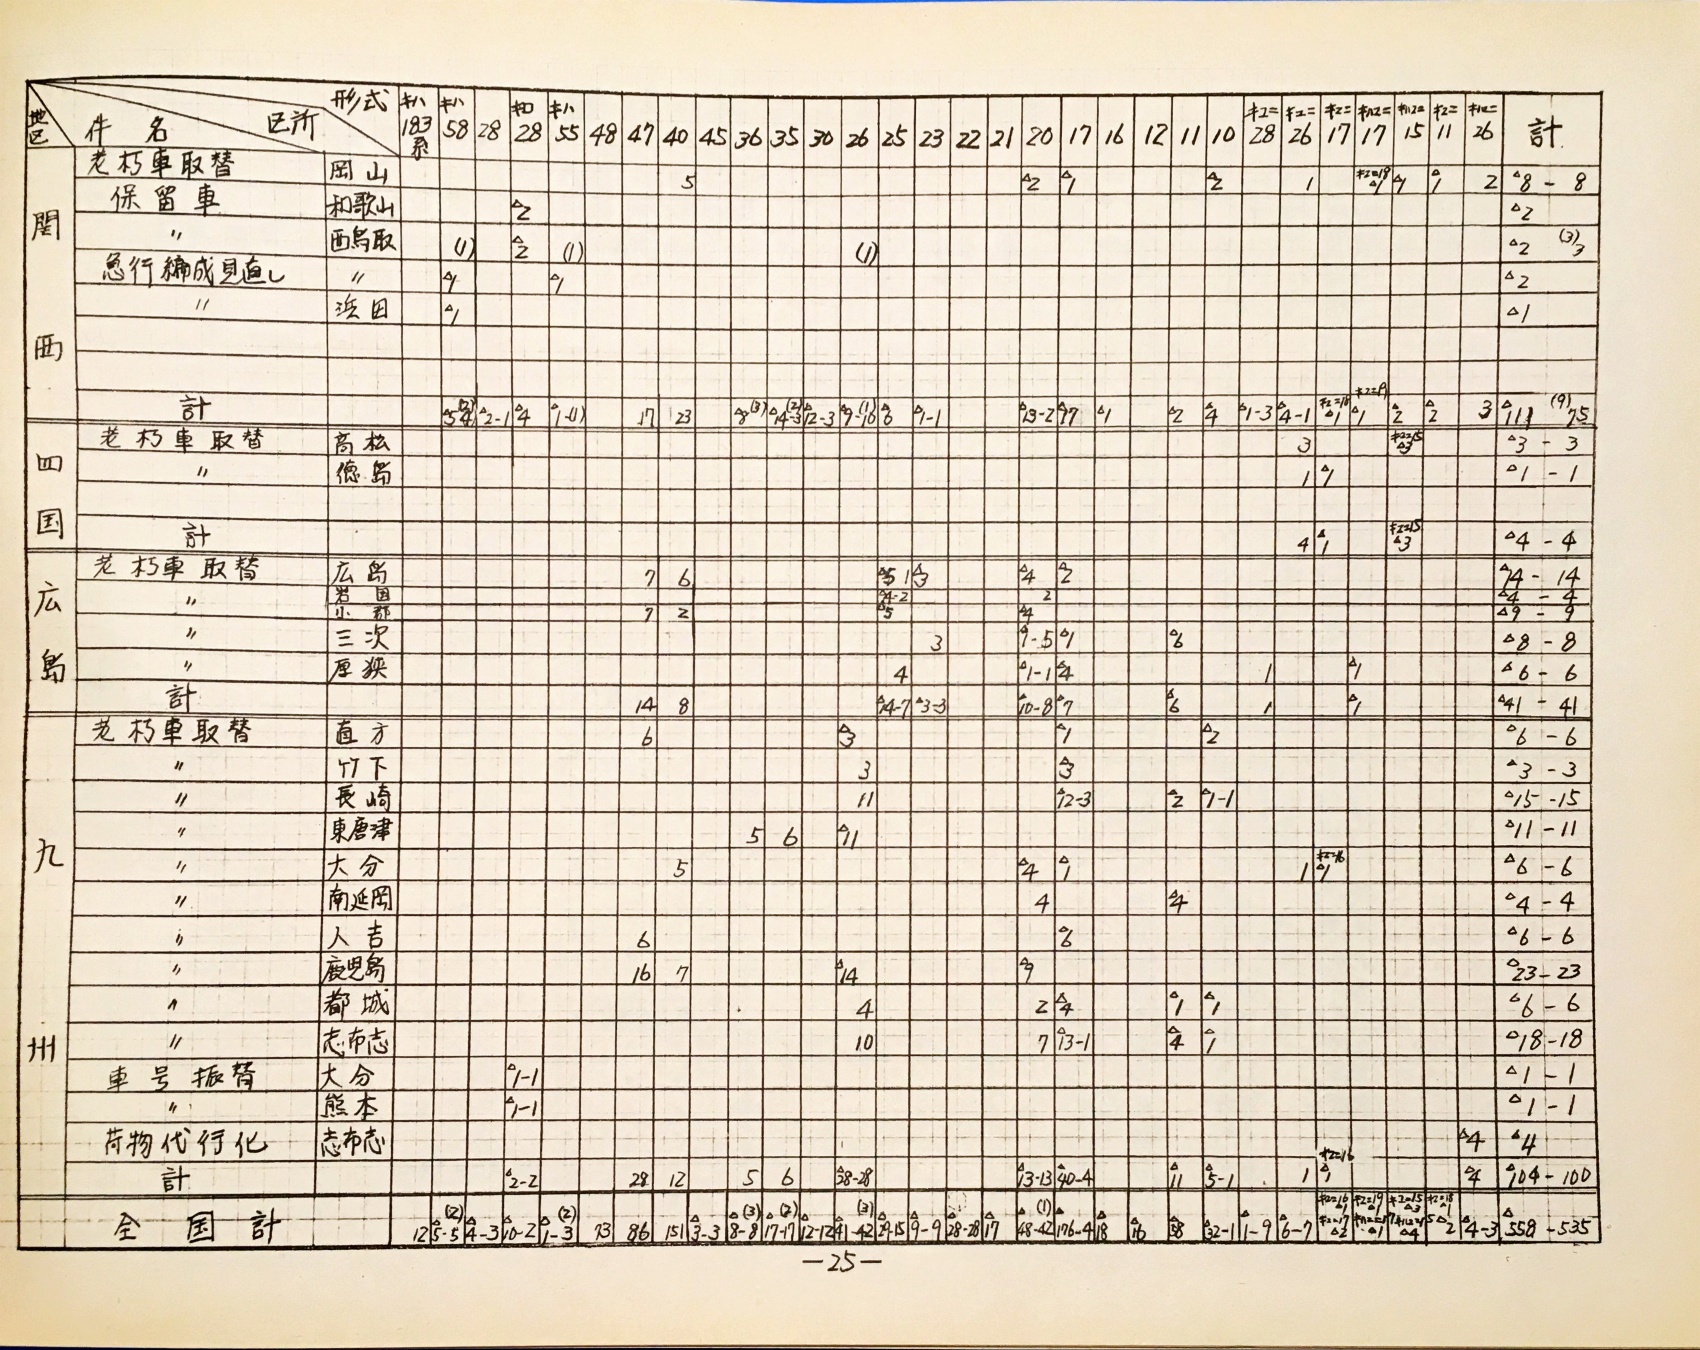 地区 件名 区所 形式 キハ183系 キハ58 28 キロ28 キハ55 48 47 40 45 36 35 30 26 25 23 22 21 20 17 16 12 11 10 キユニ28 キユニ26 キユニ17 キハユニ17 キハユニ15 キユニ11 26 計
関西
老朽車取替 岡山 5 △2 △1 △2 1 キユニ18 △1 △1 △1 2 △8-8
保留車 和歌山 △2 △2
〃 西鳥取 (1) △2 (1) (1) △2 (3)3
急行編成見直し 〃 △1 △1 △2
〃 浜田 △1 △1
計 △2-1 △4 △1-(1) 17 23 △8(3) △12-3 △6 △1-1 △23-2 △17 △1 △2 △4 △1-3 △4-1 △1 △1 △2 △2 3 △111 (9)75
四国
老朽車取替 高松 3 キユニ15 △3 △3-3
〃 徳島 1 △1 △1-1
計 4 △1 キユニ15 △3 △4-4
広島
老朽車取替 広島 7 6 △15 1 △3 △4 △2 △14-14
〃 岩国 △4-2 2 △4-4
〃 小郡 7 2 △5 △4 △9-9
〃 三次 3 △1-5 △1 △6 △8-8
〃 厚狭 4 △1-1 △4 1 △1 △6-6
計 14 8 △14-7 △3-3 △10-8 △7 △6 1 △1 △41-41
九州
老朽車取替 直方 6 △3 △1 △2 △6-6
〃 竹下 3 △3 △3-3
〃 長崎 11 △12-3 △2 △1-1 △15-15
〃 東唐津 5 6 △11 △11-11
〃 大分 5 △4 △1 1 キユニ16 △1 △6-6
〃 南延岡 4 △4 △4-4
〃 人吉 6 △6 △6-6
〃 鹿児島 16 7 △14 △9 △23-23
〃 都城 4 2 △4 △1 △1 △6-6
〃 志布志 10 7 △13-1 △4 △1 △18-18
車号振替 大分 △1-1 △1-1
〃 熊本 △1-1 △1-1
荷物代行化 志布志 △4 △4
計 △2-2 28 12 5 6 △28-28 △13-13 △40-4 △11 △5-1 1 キユニ16 △1 △4 △104-100
全国計 12 △5-5(2) △4-3 △10-2 △1-3(2) 73 86 151 △3-3 △8-8(3) △17-17(2) △12-12 △41-42(3) △29-15 △9-9 △28-28 △17 △48-42(1) △176-4 △18 △16 △38 △32-1 △1-9 △6-7 △4-3 △558-535
—25—